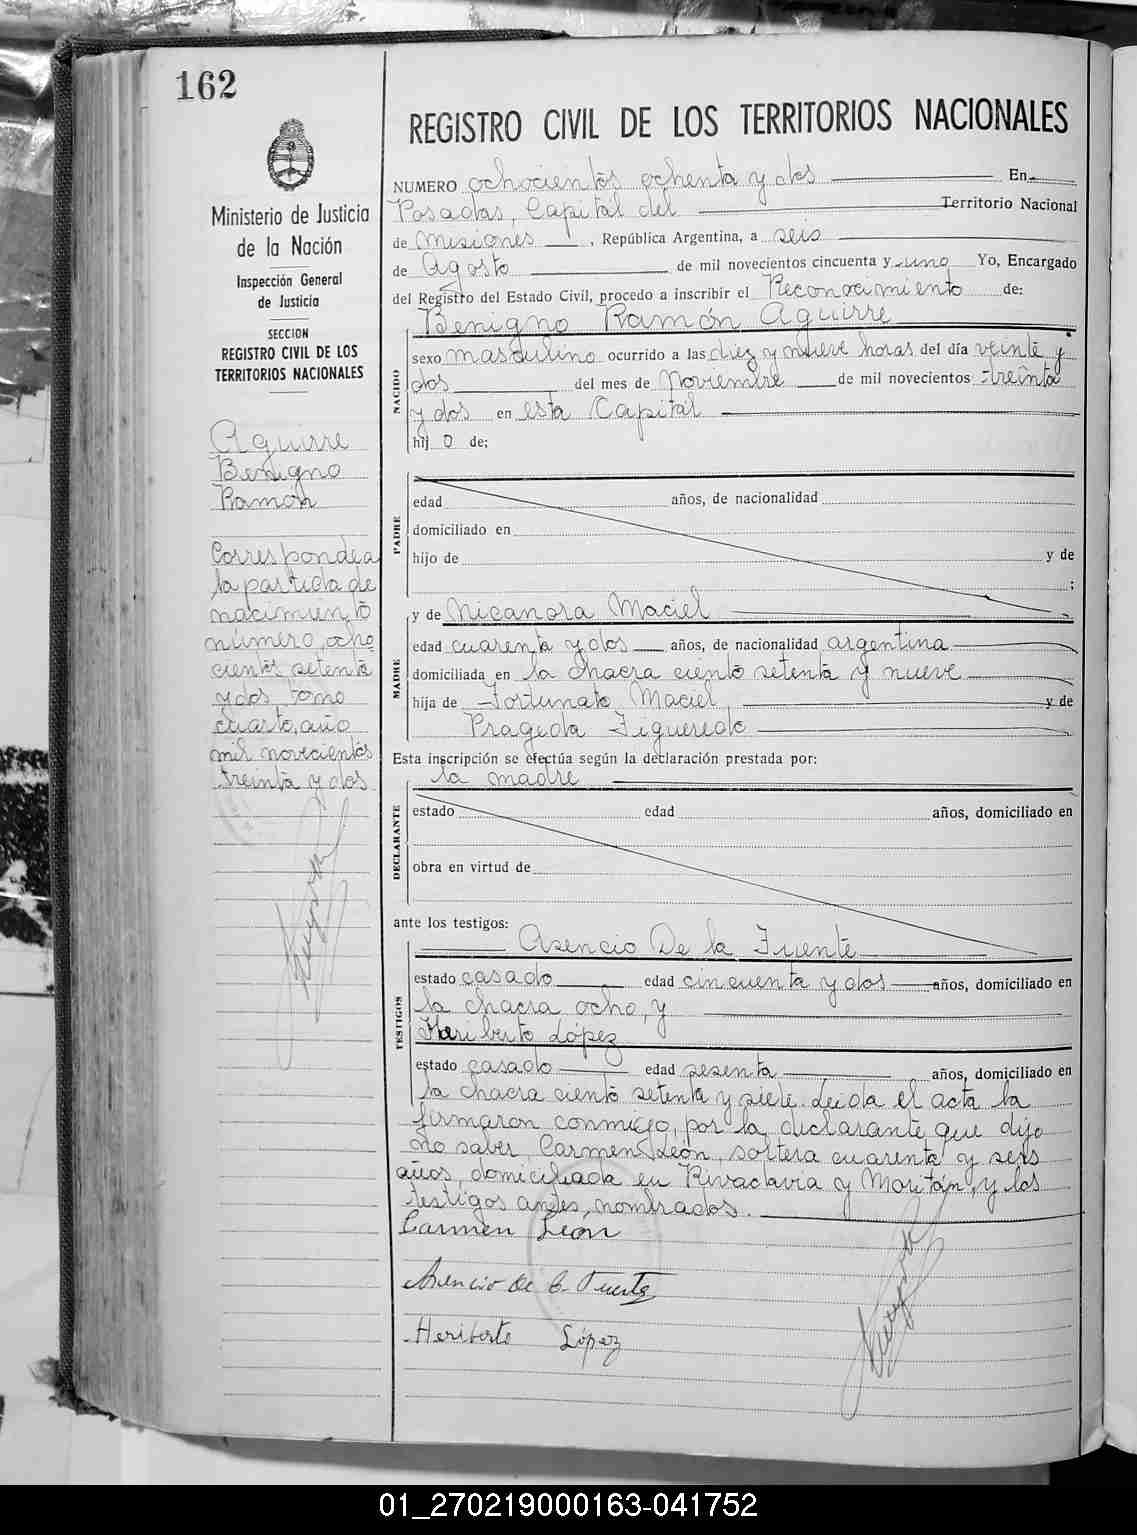 162
Ministerio de Justicia
de la Nación
Inspección General
de Justicia
SECCION
REGISTRO CIVIL DE LOS
TERRITORIOS NACIONALES
Aguirre
Benigno
Ramón
Corresponde a
la partida de
nacimiento
número ocho
cientos setenta
y dos, tomo
cuarto, año
mil novecientos
treinta y dos
REGISTRO CIVIL DE LOS TERRITORIOS NACIONALES
NUMERO ochocientos ochenta y dos En
Posadas, Capital del Territorio Nacional
de Misiones, República Argentina, a seis
de Agosto de mil novecientos cincuenta y uno Yo, Encargado
del Registro del Estado Civil, procedo a inscribir el Reconocimiento de:
Benigno Ramón Aguirre
NACIDO
sexo masculino ocurrido a las diez y nueve horas del día veinte y
dos del mes de Noviembre de mil novecientos treinta
y dos en esta Capital
hij o de;
PADRE
edad años, de nacionalidad
domiciliado en
hijo de y de
;
y de Nicanora Maciel
MADRE
edad cuarenta y dos años, de nacionalidad argentina
domiciliada en la chacra ciento setenta y nueve
hija de Fortunato Maciel y de
Prageda Figueredo
Esta inscripción se efectúa según la declaración prestada por:
la madre
DECLARANTE
estado edad años, domiciliado en
obra en virtud de
ante los testigos:
Asencio De la Fuente
TESTIGOS
estado casado edad cincuenta y dos años, domiciliado en
la chacra ocho, y
Heriberto López
estado casado edad sesenta años, domiciliado en
la chacra ciento setenta y siete. Leida el acta la
firmaron conmigo, por la declarante que dijo
no saber, Carmen León, soltera cuarenta y seis
años, domiciliada en Rivadavia y Moritán, y los
testigos antes nombrados.
Carmen León
Asencio De la Fuente
Heriberto López
01_270219000163-041752